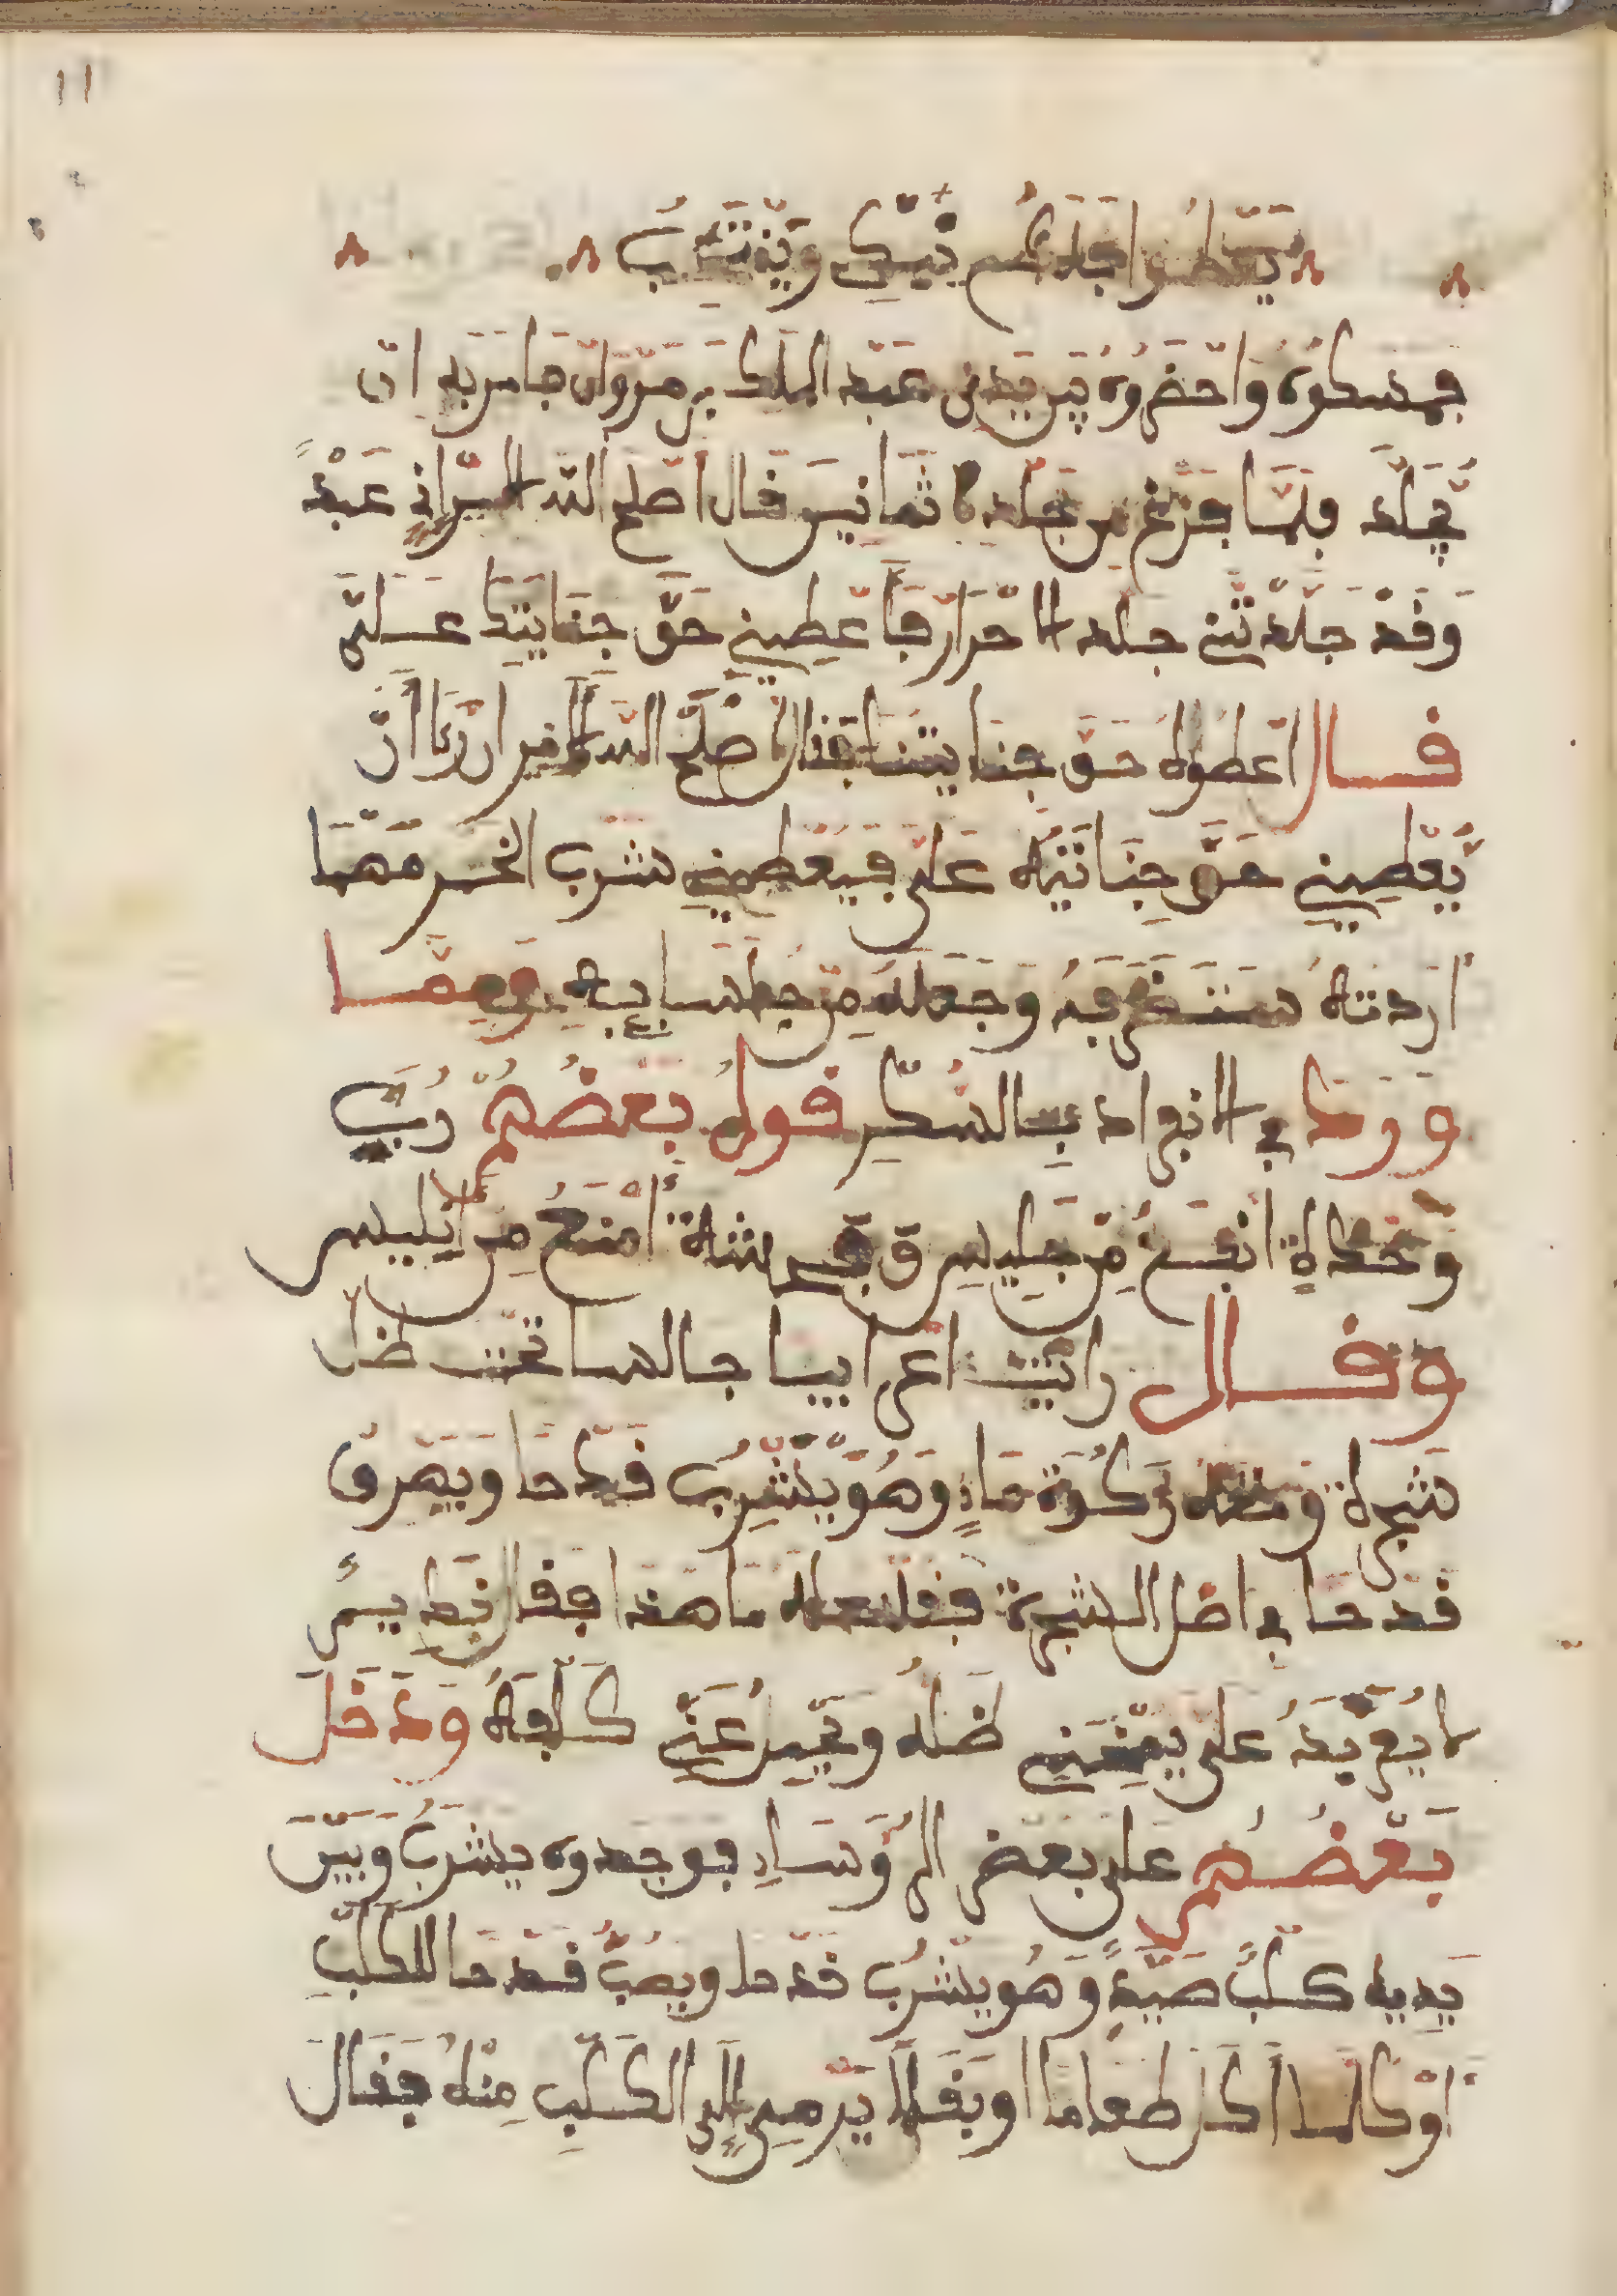 ١١
يبطلوا جلدكم نبيكى وينتحب
فمسكوه واحضروه بين يدى عبد الملك بن مروان فامر به ان
يجلد فلما فرغ من جلده ثمانين قال اصلح الله الامير انى عبد
وقد جلدتنى جلد الاحرار فاعطينى حق جنايتك على
قال اعطوه حق جنايتنا فقال اصلح الله الامير ان رءا ان
يعطينى حق جنايته على فيعطينى شرب الخمر مهما
اردته فاستظرفه وجعله من جلسايه ومما
ورد فى الانفراد بالسكر قول بعضهم رب
وحداة انفع من جليس ووحشة امنع من انيس
وقال رايت اعرابيا جالسا تحت ظل
شجرة ومعه ركوة ماء وهو يشرب قدحا ويهرق
قدحا فى اصل الشجرة فقلت له ما هذا فقال نديم
لا يعربد على يمنحنى ظله ويحمل عنى كلفه ودخل
بعضهم على بعض الرؤساء فوجدوه يشرب وبين
يديه كلب صيد وهو يشرب قدحا ويصب قدحا للكلب
او كلما اكل طعاما او بقلا يرمى الى الكلب منه فقال